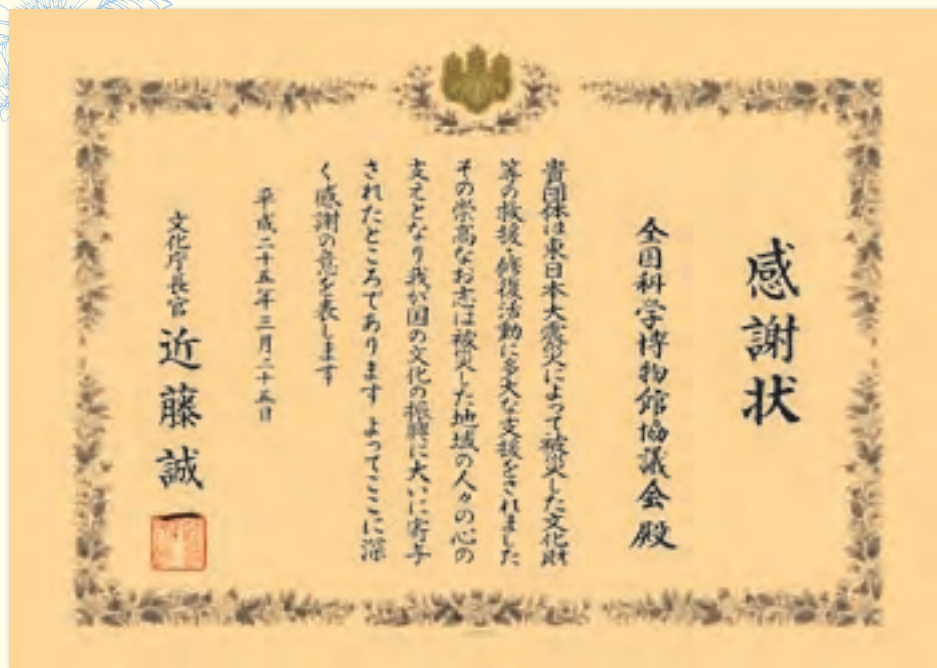 感謝状
全国科学博物館協議会 殿
貴団体は東日本大震災によって被災した文化財
等の救援・修復活動に多大な支援をされました
その崇高なお志は被災した地域の人々の心の
支えとなり我が国の文化の振興に大いに寄与
されたところであります よってここに深
く感謝の意を表します
平成二十五年三月二十五日
文化庁長官 近藤誠一